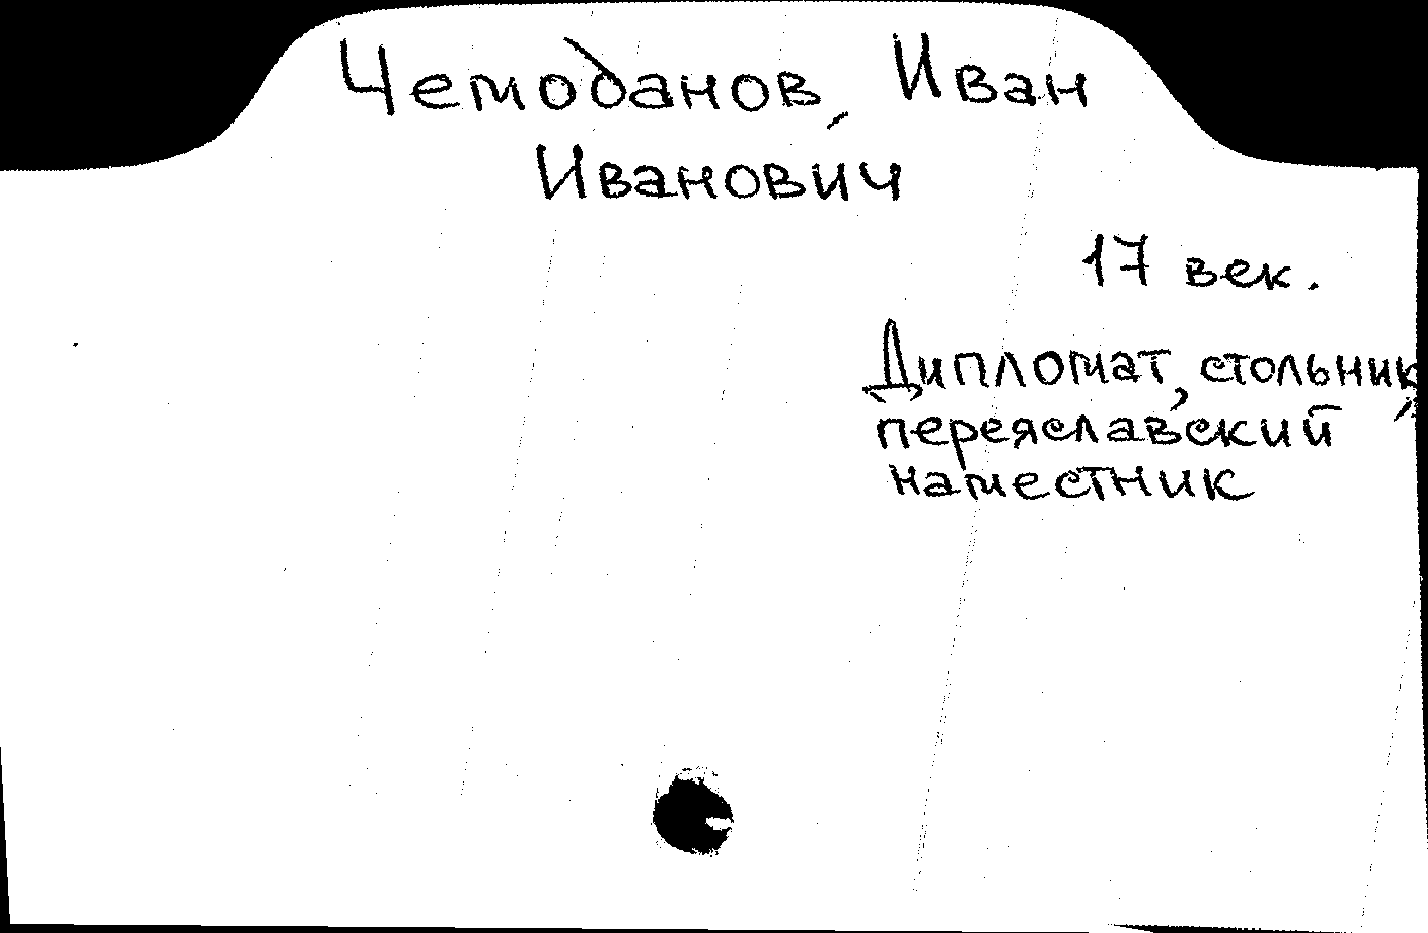 Чемоданов, Иван
Иванович
17 век.
Дипломат, стольник,
переяславский
наместник